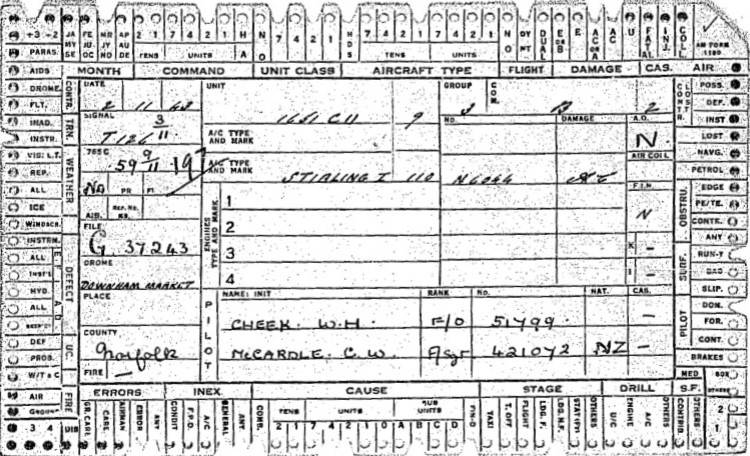 +3 -2 JA MY SE FE JU OC MR JY NO AP AU DE 7 4 2 1 H NO 7 4 2 1 HDS 7 4 2 1 7 4 2 1 NO DUAL E or B E AC or A AC U FATAL INJ. COLL
TENS UNITS A TENS UNITS AM FORM 1180
PARAS. MONTH COMMAND UNIT CLASS AIRCRAFT TYPE FLIGHT DAMAGE CAS. AIR
AIDS POSS.
DROME DEF.
FLT. INST
INAD. LOST
INSTR. NAVG.
VIS: L.T. PETROL
REP. EDGE
ALL PE/TE.
ICE CONTR.
WINDSCR. ANY
INSTRM. RUN-T
ALL BAD
INST'L SLIP.
HYD. DOM.
ALL FOR.
DEF CONT.
PROB. BRAKES
W/T & C MED BOX
AIR
GROUND
CONTR. TRK. WEATHER DEFECT UC. FIRE
LOST CONTR. OBSTRU. SURF. PILOT
DATE UNIT GROUP COM.
2 11 43 1651 CU 9 3 B 2
SIGNAL A/C TYPE AND MARK NO. DAMAGE A.O.
T126 3/11 N
765C A/C TYPE AND MARK AIR COLL
59 9/11 STIRLING I 110 N6044
NO PR FI F.I.H.
AIB. REF. NO. N
FILE ENGINES TYPE AND MARK
G. 37243
1
2
3 X -
4 I -
DROME
DOWNHAM MARKET
PLACE PILOT NAME: INIT RANK No. NAT. CAS.
CHEEK. W.H. F/O 51499 -
COUNTY
Norfolk McCARDLE. C.W. F/Sgt 421072 NZ -
FIRE -
ERRORS INEX. CAUSE STAGE DRILL S.F.
GR. CARE CARE AIRMAN ERROR ANY CONDIT F.P.O. A/C GENERAL ANY COMB. TENS UNITS SUB UNITS TAXI T. OFF FLIGHT LDG. F. LDG. N.F. STAT'RY OTHERS U/C ENGINE A/C OTHERS CONTRIB OTHERS
3 4 UIS 2 1 7 4 2 1 0 A B C D 2 1